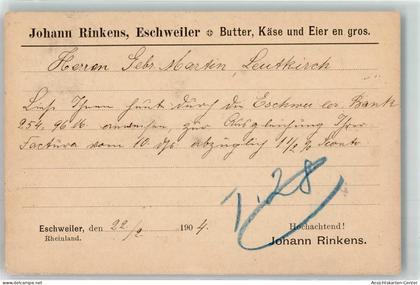 Johann Rinkens, Eschweiler ❉ Butter, Käse und Eier en gros.
Herren Gebr. Marten, Leutkirch
Ließ Ihnen heut durch die Eschweiler Bank
254.96 M anweisen, zur Ausgleichung Ihrer
Factura vom 10 ds abzüglich 1 1/2 % Sconto
1.28
Eschweiler, den 22/2 1904.
Rheinland.
Hochachtend!
Johann Rinkens.
www.delcampe.net
Ansichtskarten-Center